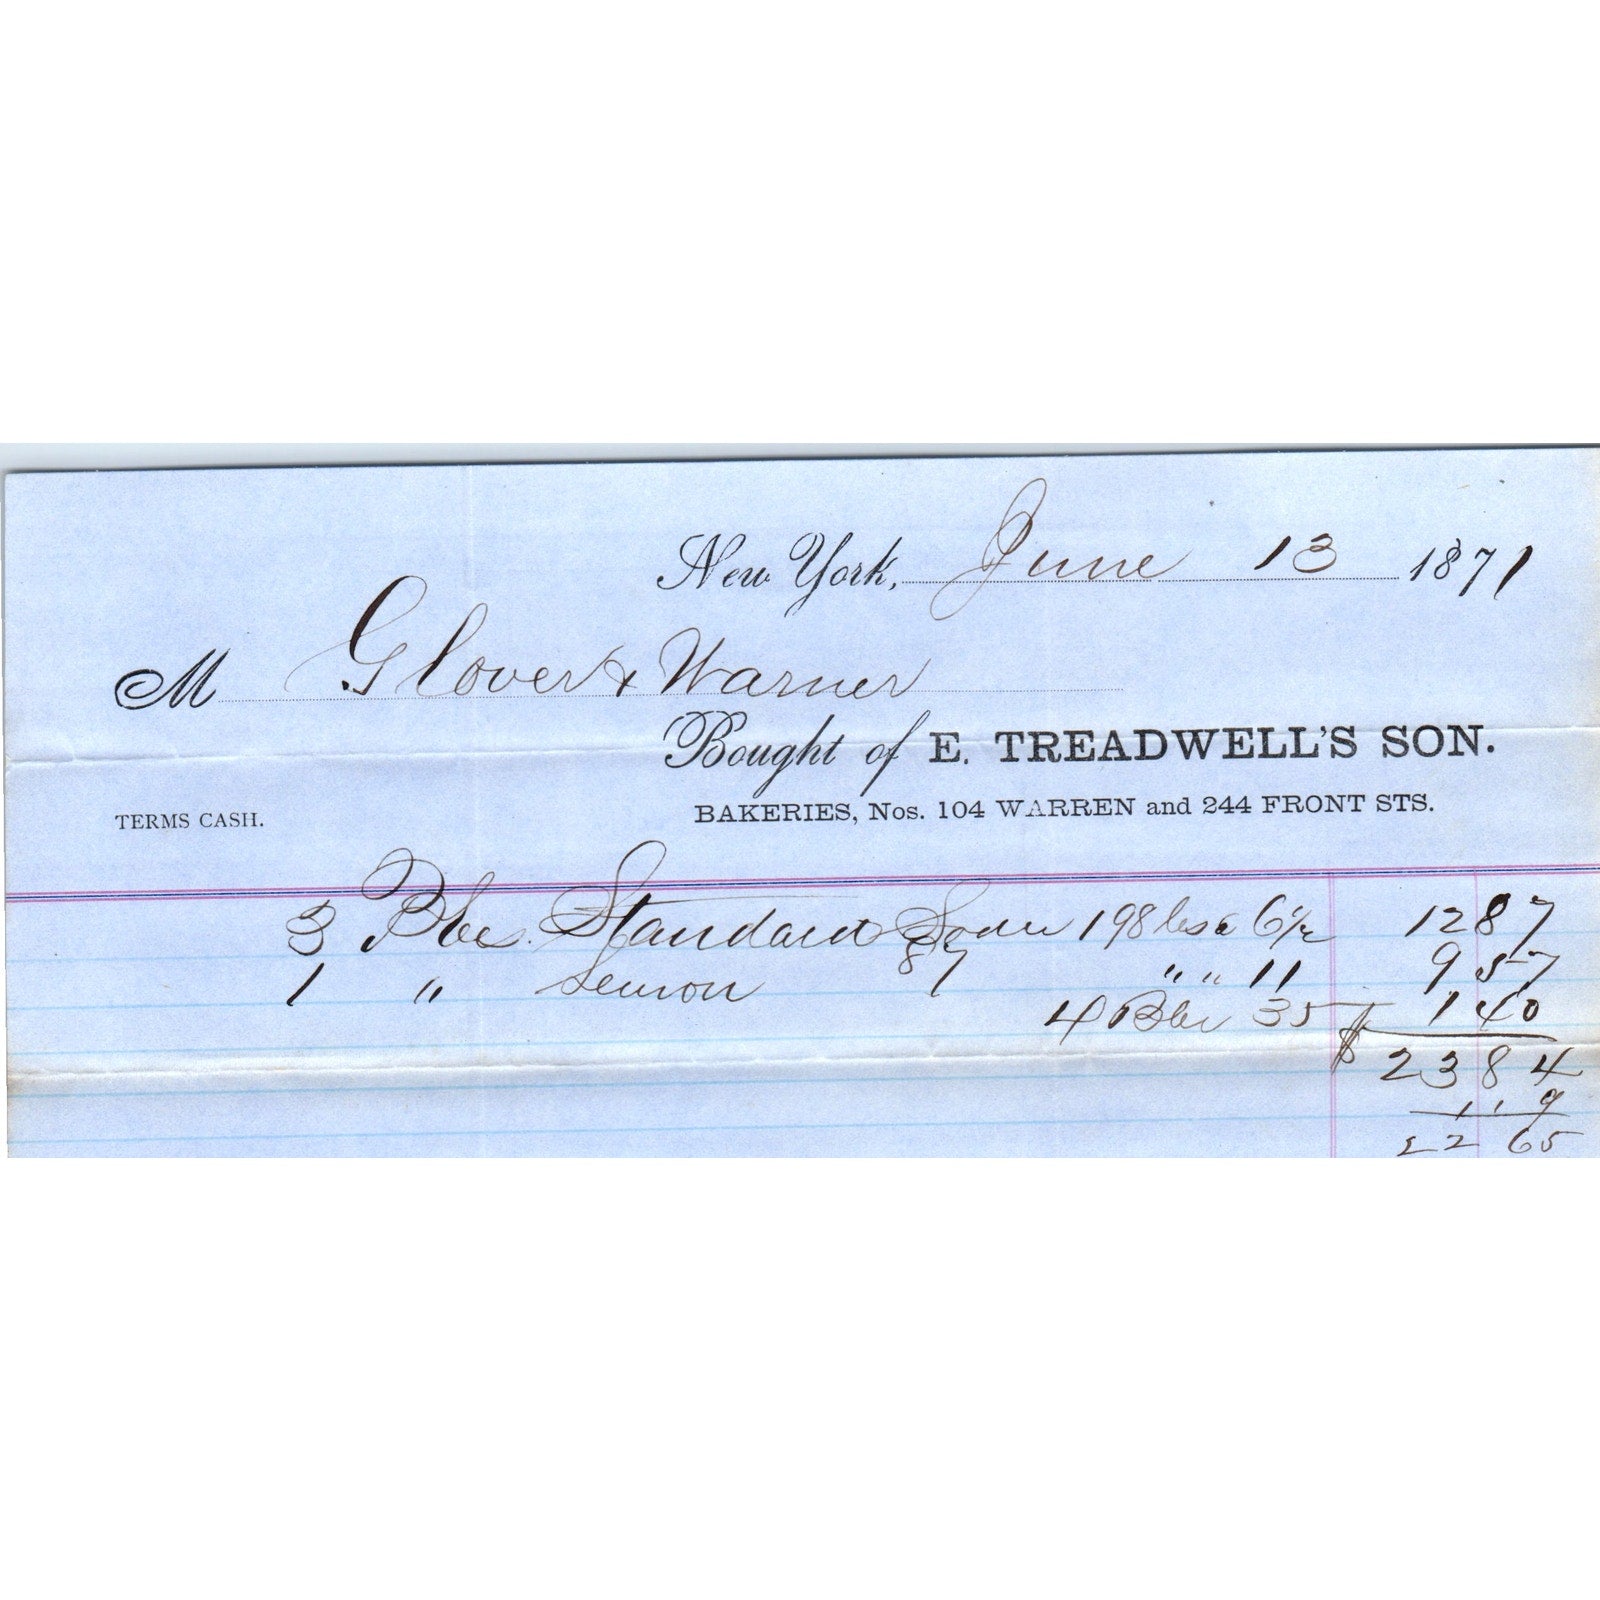 New York, June 13 1871
M Glover & Warner
Bought of E. TREADWELL'S SON.
TERMS CASH.
BAKERIES, Nos. 104 WARREN and 244 FRONT STS.
3 Bbls. Standard Soda 198 lbs a 6½ 12 87
1 " Lemon 87 " " 11 9 57
4 Bbls 35 1 40
$ 23 84
1 19
22 65